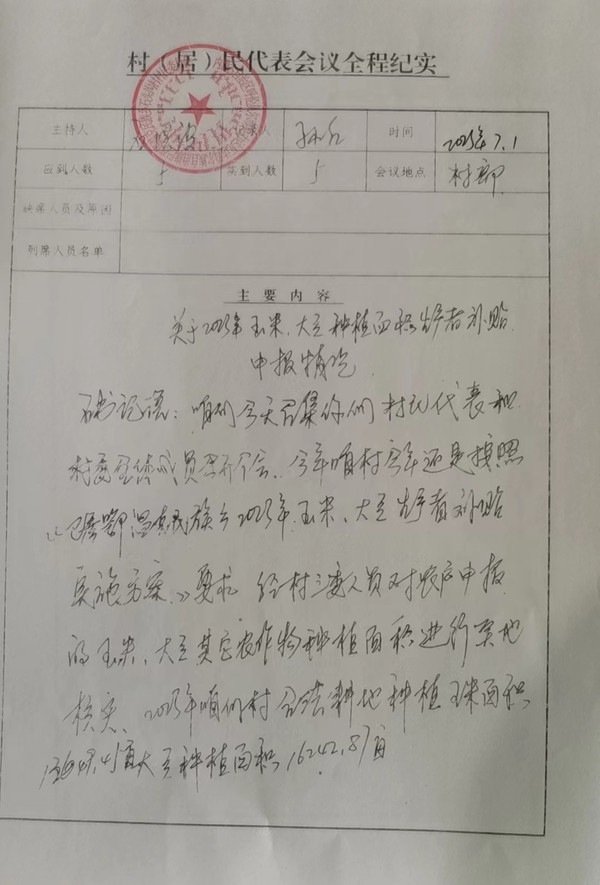 村（居）民代表会议全程纪实
主持人 录人 孙 时间 2025年7.1
应到人数 5 实到人数 5 会议地点 村部
缺席人员及原因
列席人员名单
主要内容
关于2025年玉米、大豆种植面积生产者补贴
申报情况
书记讲：咱们今天召集你们村民代表和
村委全体成员召开个会、今年咱村今年还是按照
《鄂温克民族乡2025年玉米、大豆生产者补贴
实施方案》要求 经村三委人员对农户申报
的玉米、大豆其它农作物种植面积进行实地
核实、2025年咱们村合法耕地种植玉米面积
亩大豆种植面积16242.87亩